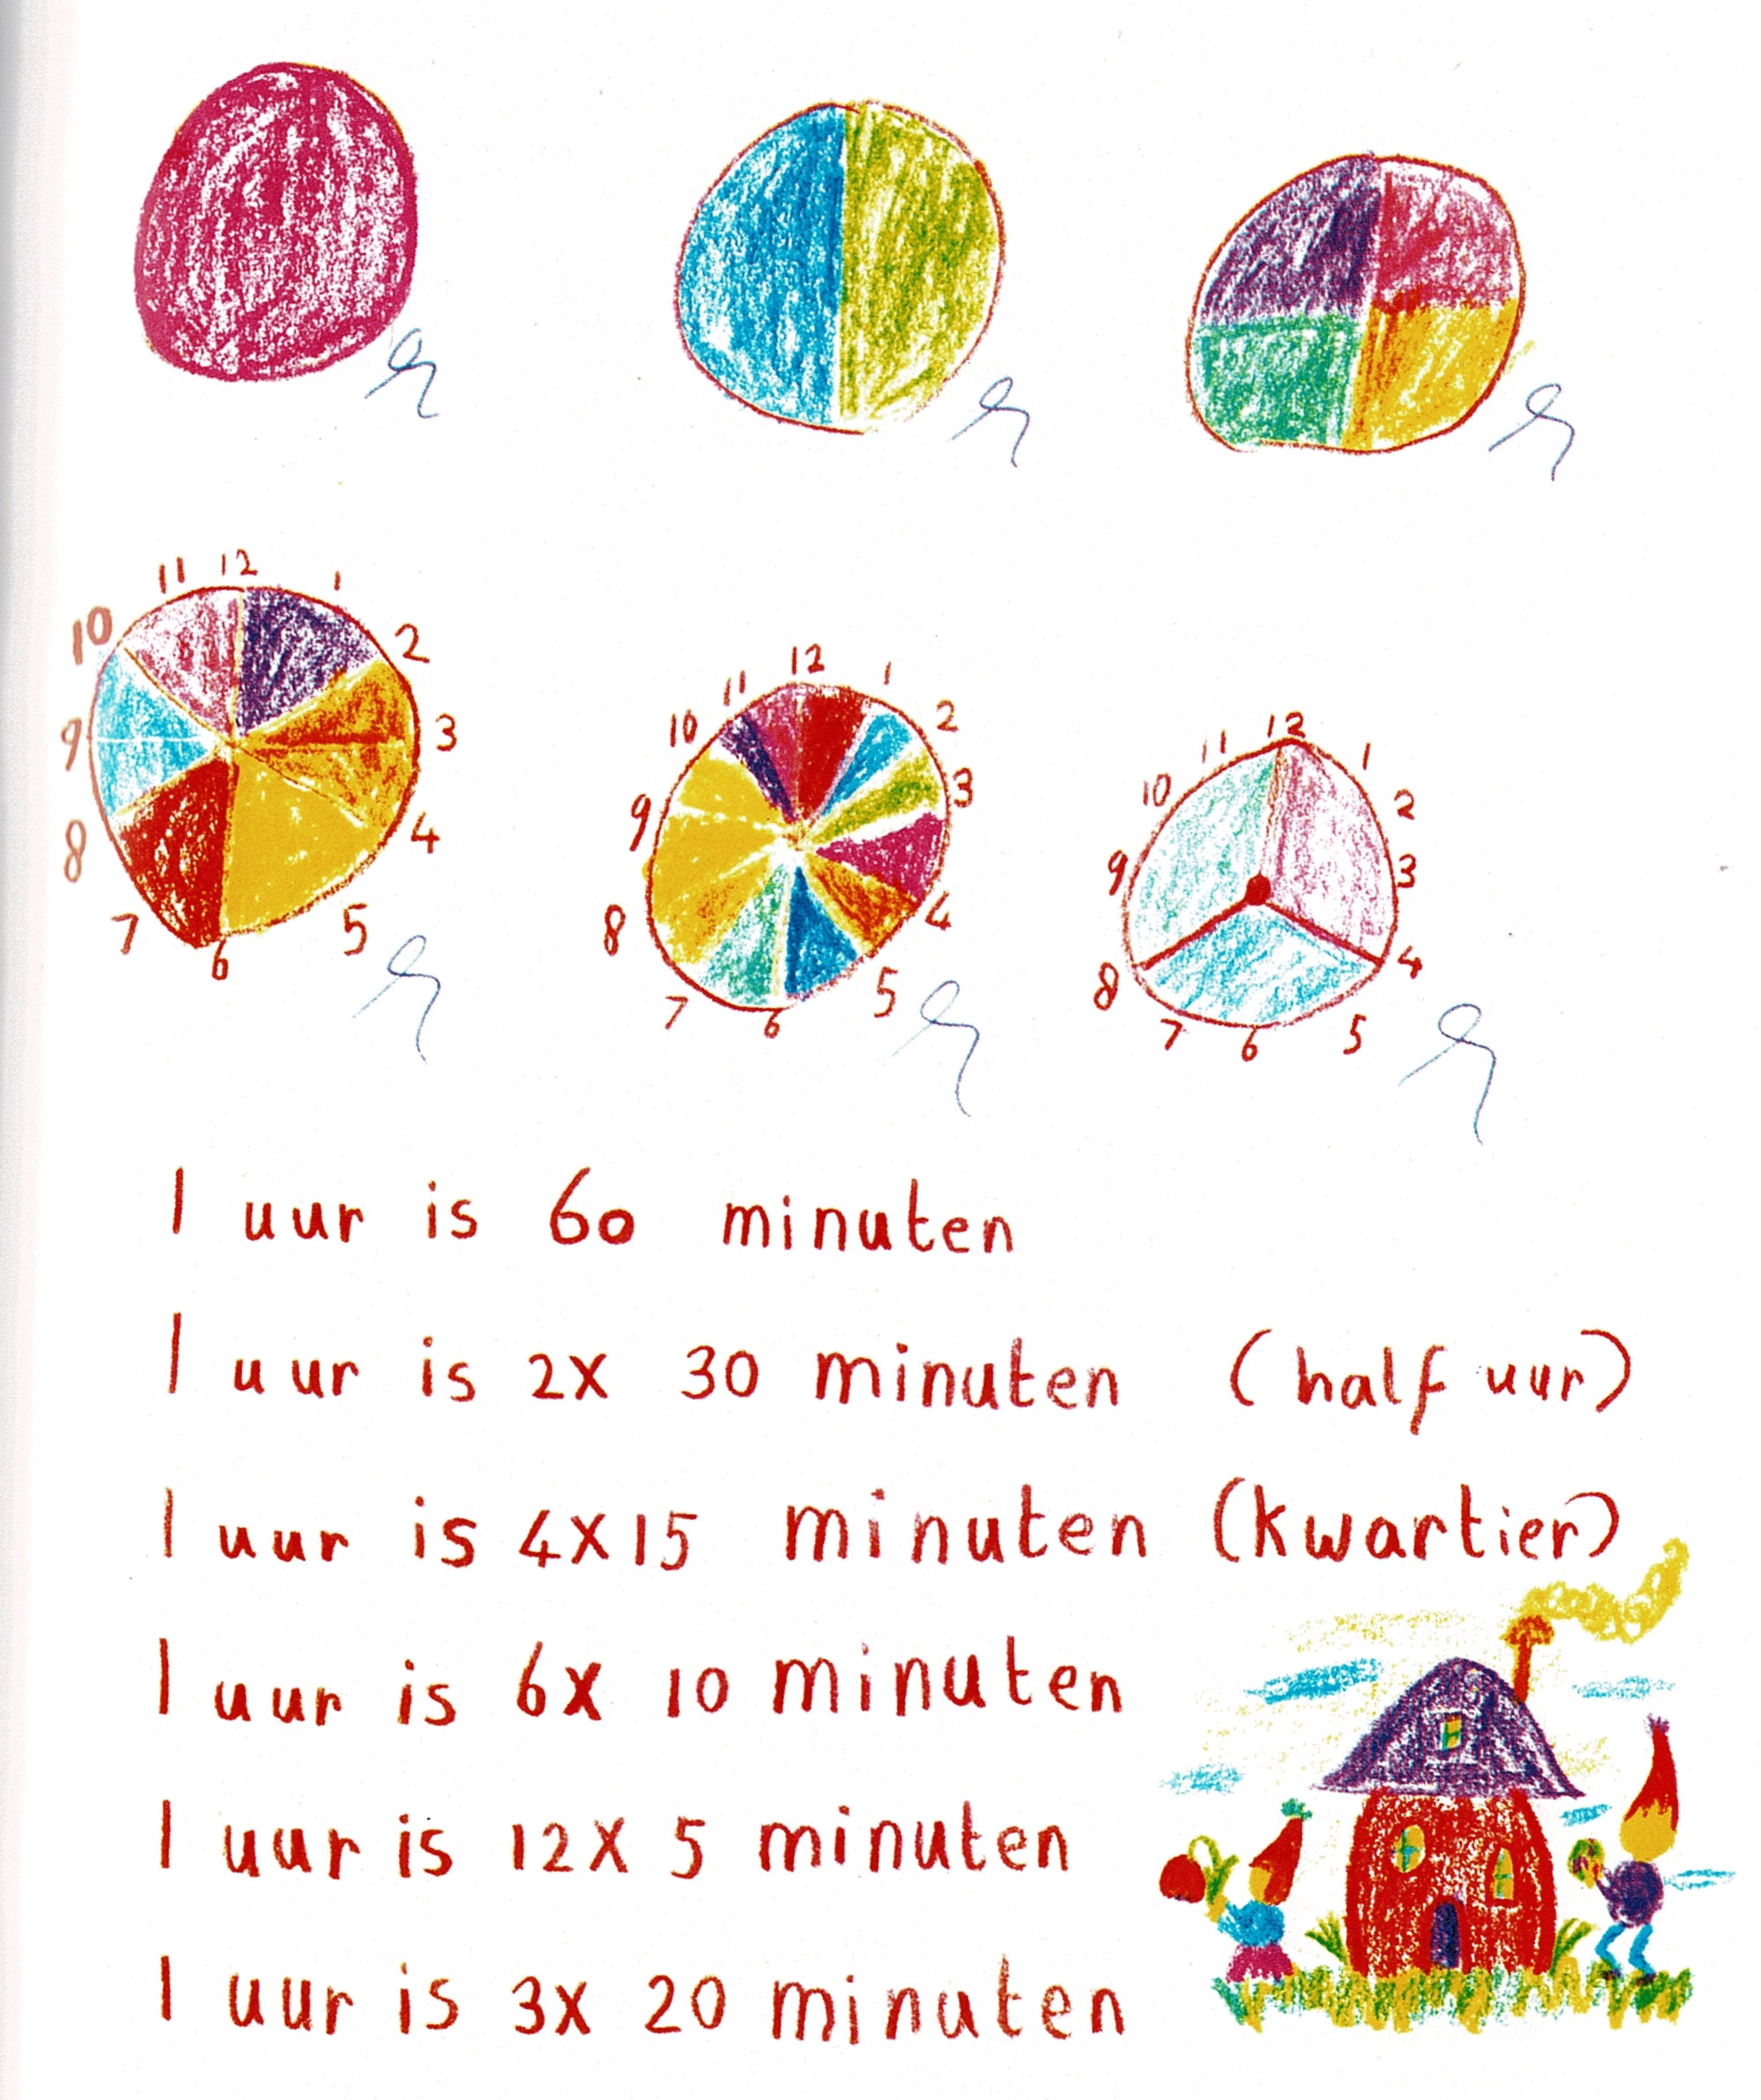 11 12 1
10 2
9 3
8 4
7 6 5
11 12 1
10 2
9 3
8 4
7 6 5
11 12 1
10 2
9 3
8 4
7 6 5
1 uur is 60 minuten
1 uur is 2x 30 minuten (half uur)
1 uur is 4x15 minuten (kwartier)
1 uur is 6x 10 minuten
1 uur is 12x 5 minuten
1 uur is 3x 20 minuten